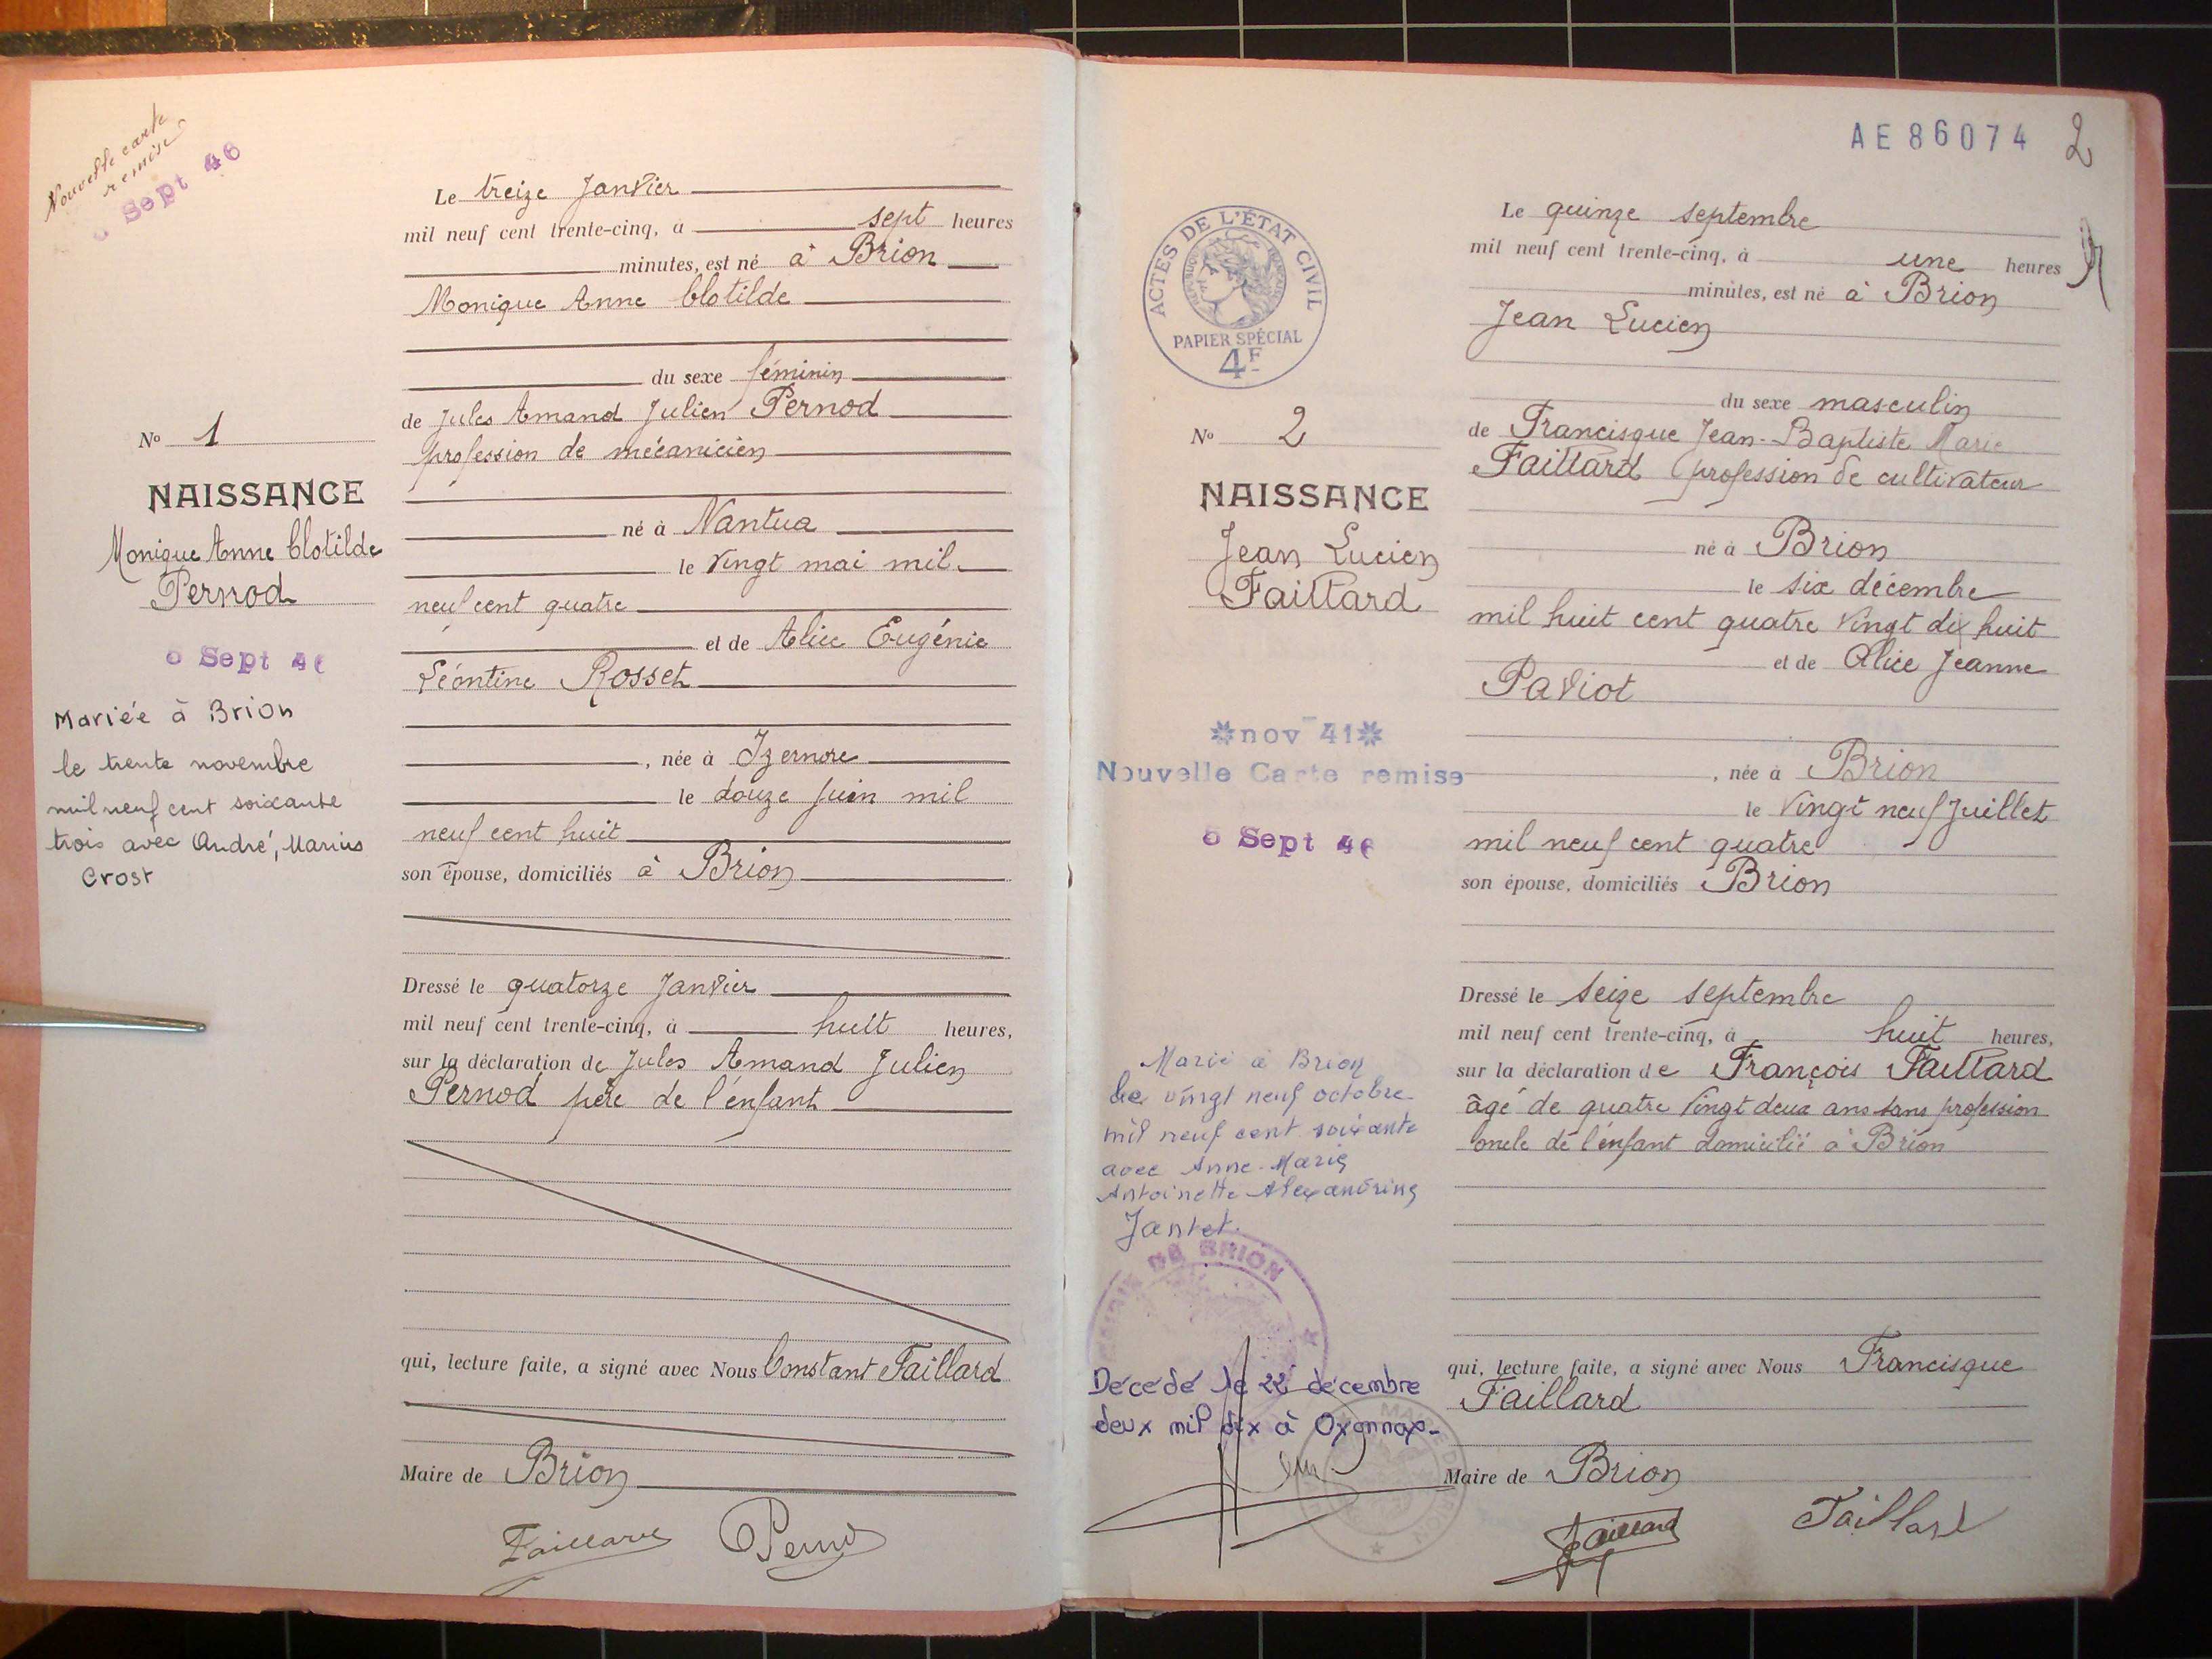 Nouvelle carte
remise
6 Sept 46
Le treize Janvier
mil neuf cent trente-cinq, à sept heures
minutes, est né à Brion
Monique Anne Clotilde
du sexe féminin
de Jules Amand Julien Pernod
profession de mécanicien
né à Nantua
le vingt mai mil
neuf cent quatre
et de Alice Eugénie
Léontine Rosset
, née à Izernore
le douze juin mil
neuf cent huit
son épouse, domiciliés à Brion
Dressé le quatorze Janvier
mil neuf cent trente-cinq, à huit heures,
sur la déclaration de Jules Amand Julien
Pernod père de l'enfant
qui, lecture faite, a signé avec Nous Constant Faillard
Maire de Brion
Faillard Pernod
No 1
NAISSANCE
Monique Anne Clotilde
Pernod
6 Sept 46
Mariée à Brion
le trente novembre
mil neuf cent soixante
trois avec André, Marius
Crost
AE 86074 2
ACTES DE L'ÉTAT CIVIL
RÉPUBLIQUE FRANÇAISE
PAPIER SPÉCIAL
4F
No 2
NAISSANCE
Jean Lucien
Faillard
nov 41
Nouvelle Carte remise
6 Sept 46
Marié à Brion
le vingt neuf octobre
mil neuf cent soixante
avec Anne-Marie
Antoinette Alexandrine
Jantet.
MAIRIE DE BRION
Décédé le 22 décembre
deux mil dix à Oyonnax
Le quinze septembre
mil neuf cent trente-cinq, à une heures
minutes, est né à Brion
Jean Lucien
du sexe masculin
de Francisque Jean-Baptiste Marie
Faillard profession de cultivateur
né à Brion
le six décembre
mil huit cent quatre vingt dix huit
et de Alice Jeanne
Paviot
, née à Brion
le vingt neuf Juillet
mil neuf cent quatre
son épouse, domiciliés Brion
Dressé le seize septembre
mil neuf cent trente-cinq, à huit heures,
sur la déclaration de François Faillard
âgé de quatre vingt deux ans sans profession
oncle de l'enfant domicilié à Brion
qui, lecture faite, a signé avec Nous Francisque
Faillard
Maire de Brion
Faillard Faillard